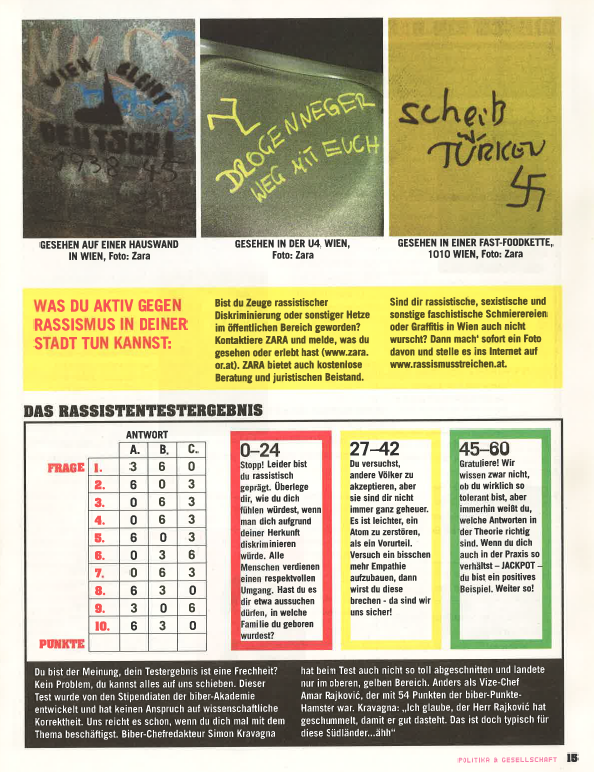 WIEN BLEIBT
DEUTSCH!
1938-45
DROGENNEGER
WEG MIT EUCH
scheiß
TÜRKEN
GESEHEN AUF EINER HAUSWAND
IN WIEN, Foto: Zara
GESEHEN IN DER U4, WIEN,
Foto: Zara
GESEHEN IN EINER FAST-FOODKETTE,
1010 WIEN, Foto: Zara
WAS DU AKTIV GEGEN
RASSISMUS IN DEINER
STADT TUN KANNST:
Bist du Zeuge rassistischer
Diskriminierung oder sonstiger Hetze
im öffentlichen Bereich geworden?
Kontaktiere ZARA und melde, was du
gesehen oder erlebt hast (www.zara.
or.at). ZARA bietet auch kostenlose
Beratung und juristischen Beistand.
Sind dir rassistische, sexistische und
sonstige faschistische Schmierereien
oder Graffitis in Wien auch nicht
wurscht? Dann mach' sofort ein Foto
davon und stelle es ins Internet auf
www.rassismusstreichen.at.
DAS RASSISTENTESTERGEBNIS
ANTWORT
A. B. C.
FRAGE 1. 3 6 0
2. 6 0 3
3. 0 6 3
4. 0 6 3
5. 6 0 3
6. 0 3 6
7. 0 6 3
8. 6 3 0
9. 3 0 6
10. 6 3 0
PUNKTE
0–24
Stopp! Leider bist
du rassistisch
geprägt. Überlege
dir, wie du dich
fühlen würdest, wenn
man dich aufgrund
deiner Herkunft
diskriminieren
würde. Alle
Menschen verdienen
einen respektvollen
Umgang. Hast du es
dir etwa aussuchen
dürfen, in welche
Familie du geboren
wurdest?
27–42
Du versuchst,
andere Völker zu
akzeptieren, aber
sie sind dir nicht
immer ganz geheuer.
Es ist leichter, ein
Atom zu zerstören,
als ein Vorurteil.
Versuch ein bisschen
mehr Empathie
aufzubauen, dann
wirst du diese
brechen - da sind wir
uns sicher!
45–60
Gratuliere! Wir
wissen zwar nicht,
ob du wirklich so
tolerant bist, aber
immerhin weißt du,
welche Antworten in
der Theorie richtig
sind. Wenn du dich
auch in der Praxis so
verhältst – JACKPOT –
du bist ein positives
Beispiel. Weiter so!
Du bist der Meinung, dein Testergebnis ist eine Frechheit?
Kein Problem, du kannst alles auf uns schieben. Dieser
Test wurde von den Stipendiaten der biber-Akademie
entwickelt und hat keinen Anspruch auf wissenschaftliche
Korrektheit. Uns reicht es schon, wenn du dich mal mit dem
Thema beschäftigst. Biber-Chefredakteur Simon Kravagna
hat beim Test auch nicht so toll abgeschnitten und landete
nur im oberen, gelben Bereich. Anders als Vize-Chef
Amar Rajković, der mit 54 Punkten der biber-Punkte-
Hamster war. Kravagna: „Ich glaube, der Herr Rajković hat
geschummelt, damit er gut dasteht. Das ist doch typisch für
diese Südländer...ähh“
POLITIKA & GESELLSCHAFT 15